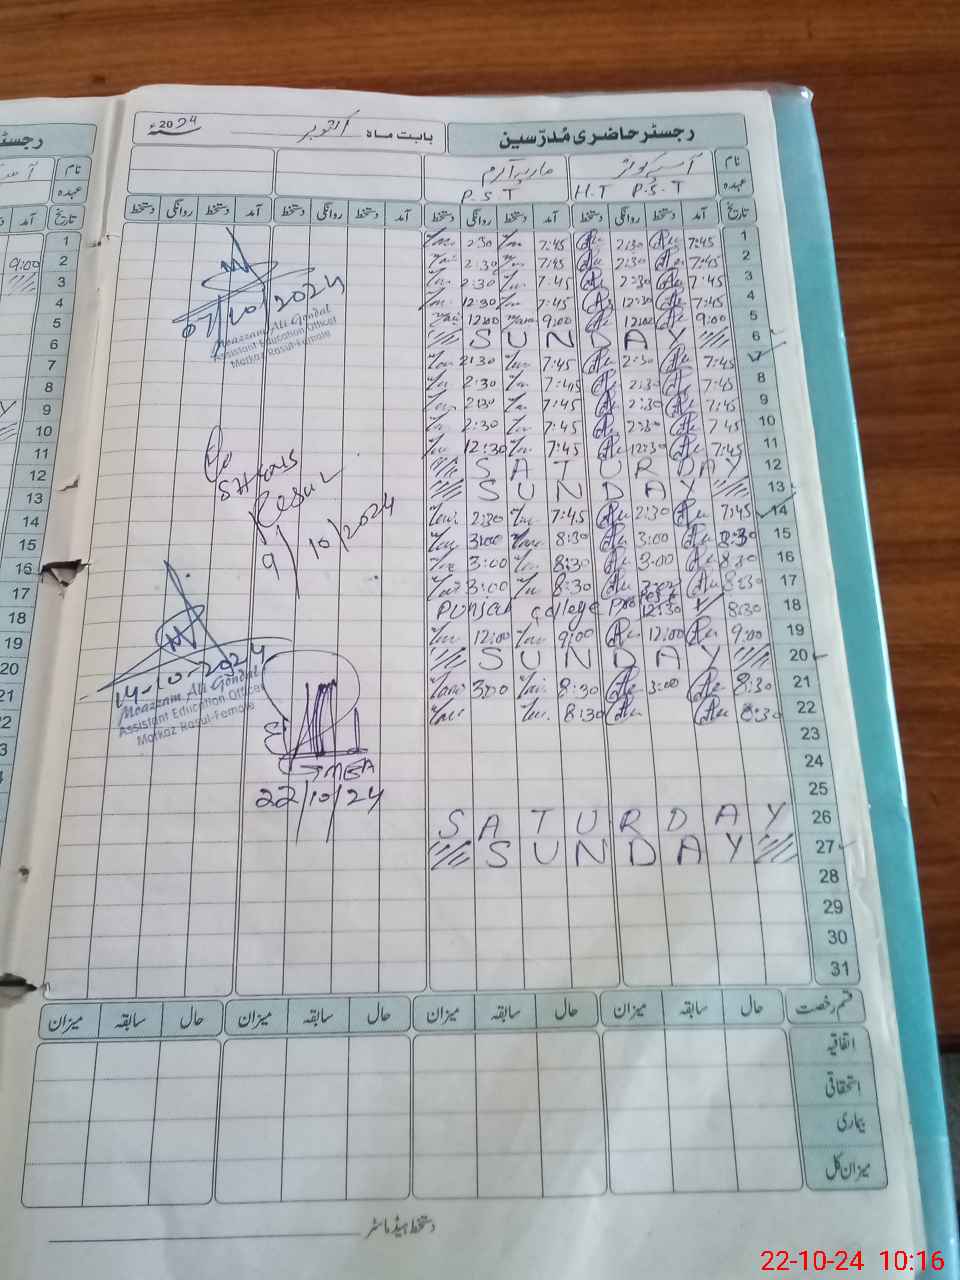 رجسٹر حاضری مُدرّسین
بابت ماہ اکتوبر 2024ء
نام آسیہ کوثر ماریہ اکرم
عہدہ H.T P.S.T P.S.T
تاریخ آمد دستخط روانگی دستخط آمد دستخط روانگی دستخط آمد دستخط روانگی دستخط آمد دستخط روانگی دستخط
1 7:45 2:30 7:45 2:30
2 7:45 2:30 7:45 2:30
3 7:45 2:30 7:45 2:30
4 7:45 12:30 7:45 12:30
5 9:00 12:00 9:00 12:00
6 SUNDAY
7 7:45 2:30 7:45 2:30
8 7:45 2:30 7:45 2:30
9 7:45 2:30 7:45 2:30
10 7:45 2:30 7:45 2:30
11 7:45 12:30 7:45 12:30
12 SATURDAY
13 SUNDAY
14 7:45 2:30 7:45 2:30
15 8:30 3:00 8:30 3:00
16 8:30 3:00 8:30 3:00
17 8:30 3:00 8:30 3:00
18 Punjab College 12:30 8:30
19 9:00 12:00 9:00 12:00
20 SUNDAY
21 8:30 3:00 8:30 3:00
22 8:30 8:30
23
24
25
26 SATURDAY
27 SUNDAY
28
29
30
31
07/10/2024
Moazzam Ali Gondal
Assistant Education Officer
Markaz Rasul-Female
Rasul
9/10/2024
14-10-2024
Moazzam Ali Gondal
Assistant Education Officer
Markaz Rasul-Female
MEA
22/10/24
قسم رخصت حال سابقہ میزان حال سابقہ میزان حال سابقہ میزان حال سابقہ میزان
اتفاقیہ
استحقاقی
بیماری
میزان کل
دستخط ہیڈ ماسٹر
رجسٹر
نام
عہدہ
تاریخ آمد
1
2 9:00
3
4
5
6
7
8
9
10
11
12
13
14
15
16
17
18
19
20
21
22
22-10-24 10:16